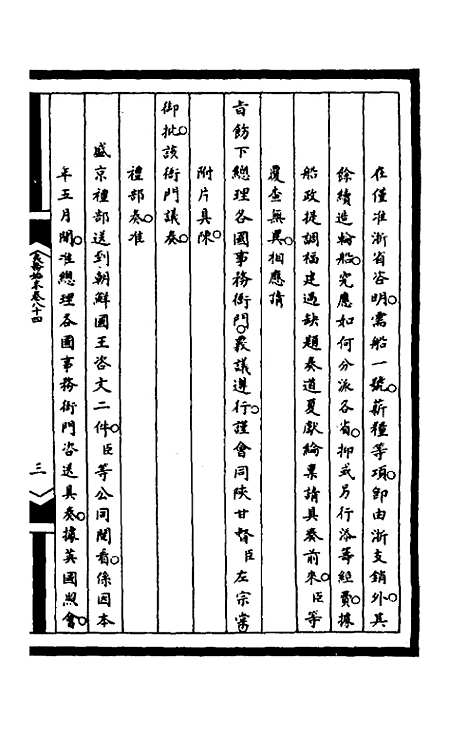 在僅准浙省咨明。需船一號。薪糧等項。卽由浙支銷外。其
餘續造輪船。究應如何分派各省。抑或另行添籌經費。據
船政提調福建遇缺題奏道夏獻綸稟請具奏前來。臣等
覆查無異。相應請
旨飭下總理各國事務衙門。覈議遵行。謹會同陝甘督臣左宗棠
附片具陳。
御批該衙門議奏。
禮部奏。准
盛京禮部送到朝鮮國王咨文二件。臣等公同閱看。係因本
年五月間。准總理各國事務衙門咨送具奏。據英國照會。
夷務始末卷八十四
三